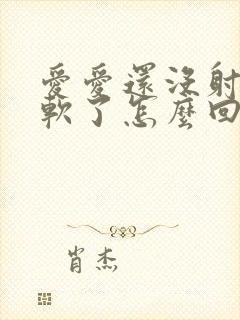 愛愛還沒射
軟了怎麼回
肖杰